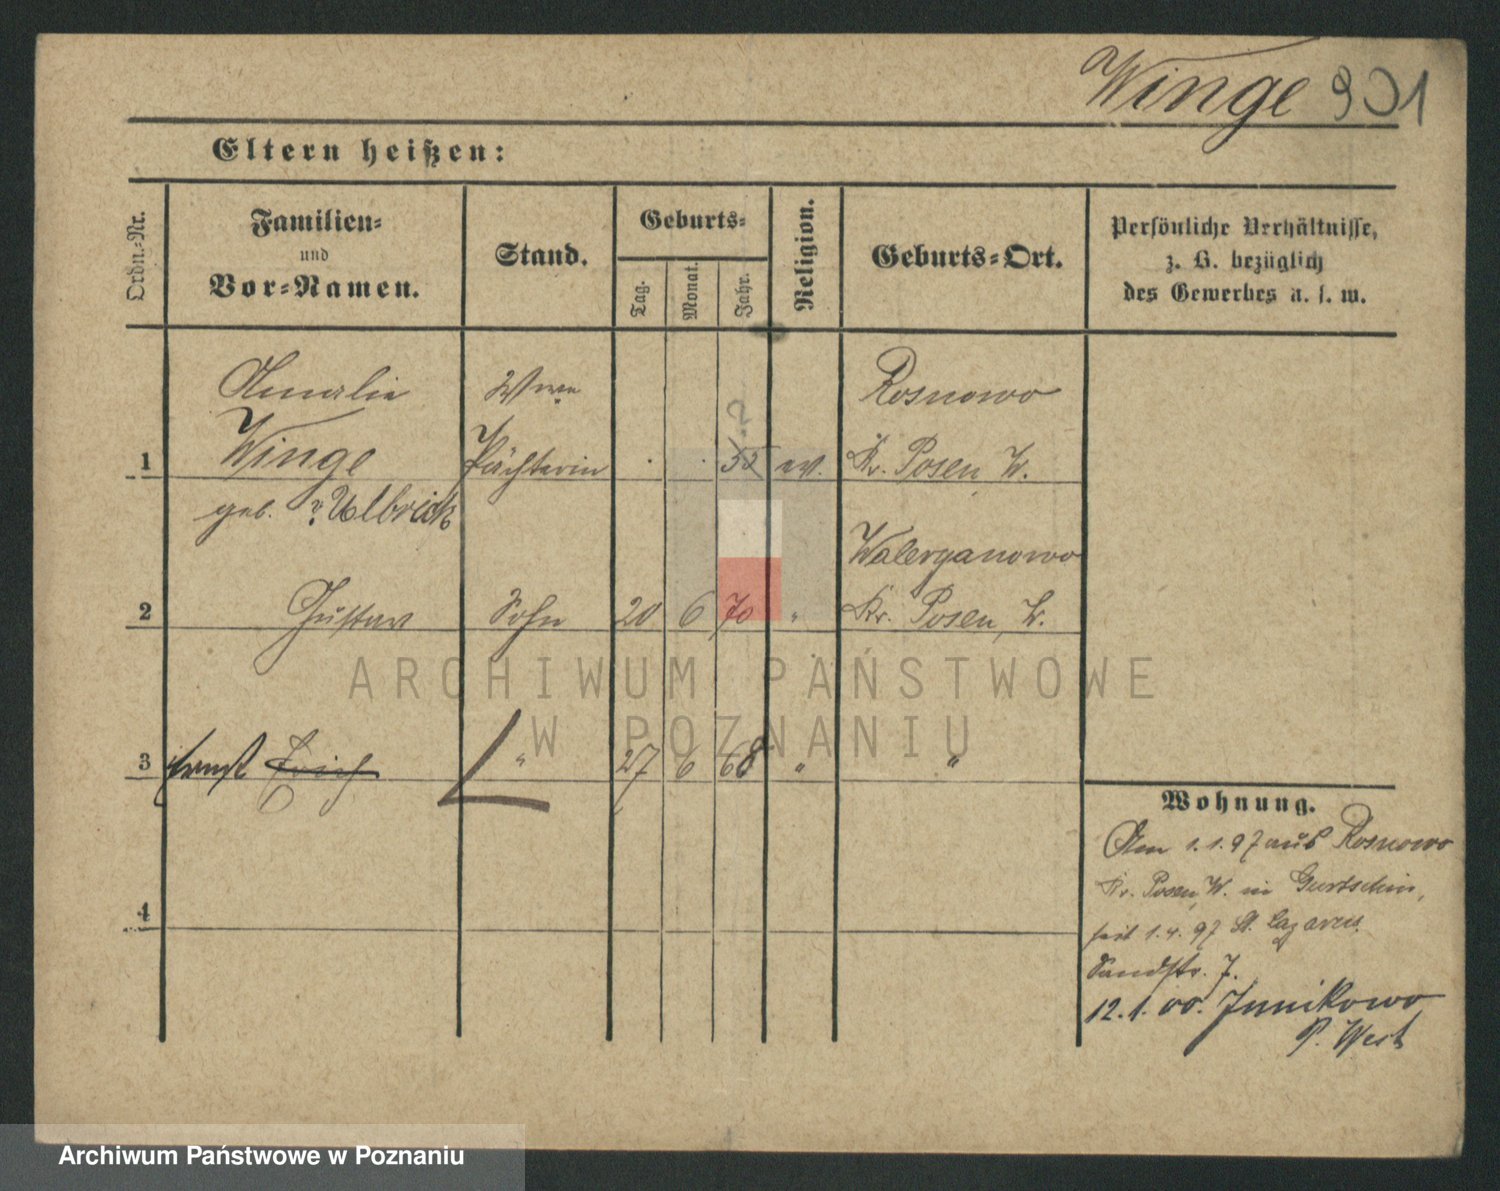 Winge 901
Eltern heißen:
Ordn.=Nr.
Familien=
und
Vor=Namen.
Stand.
Geburts=
Tag.
Monat.
Jahr.
Religion.
Geburts=Ort.
Persönliche Verhältnisse,
z. B. bezüglich
des Gewerbes u. s. w.
Amalie Wwe Rosnowo
1 Winge Pächterin . . 52 ev. Kr. Posen W.
geb. ? Ulbrich
Walerganowo
2 Gustav Sohn 20 6 70 " Kr. Posen W.
3 Ernst Erich " 27 6 68 " "
4
Wohnung.
Am 1.1.97 aus Rosnowo
Kr. Posen W. in Gurtschin,
seit 1.4.97 St. Lazarus
Sandstr. 7.
12.1.00. Junikowo
P. West
ARCHIWUM PAŃSTWOWE
W POZNANIU
Archiwum Państwowe w Poznaniu